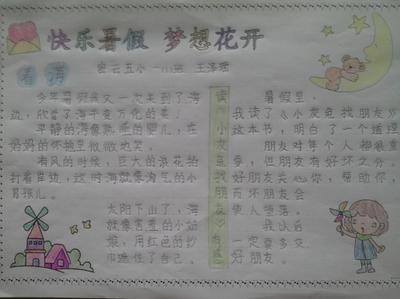 快乐暑假 梦想花开
密云五小
看海
今年暑假我又一次来到了海
边,欣赏了海千变万化的美!
早静的海像熟睡的婴儿,在
妈妈的怀抱里微微地笑。
有风的时候,巨大的浪花拍
打着岸边,这时海就像淘气的小
男孩儿。
太阳下山了,海
就像害羞的小姑
娘,用红色的纱
巾遮住了自己。
读《小灰兔找朋友》有感
暑假里,
我读了《小灰兔找朋友》
这本书,明白了一个道理
朋友对每个人都很重
要,但朋友有好坏之分,
好朋友关心你,帮助你,
而坏朋友会
使人堕落。
我以后
一定要多交
好朋友。